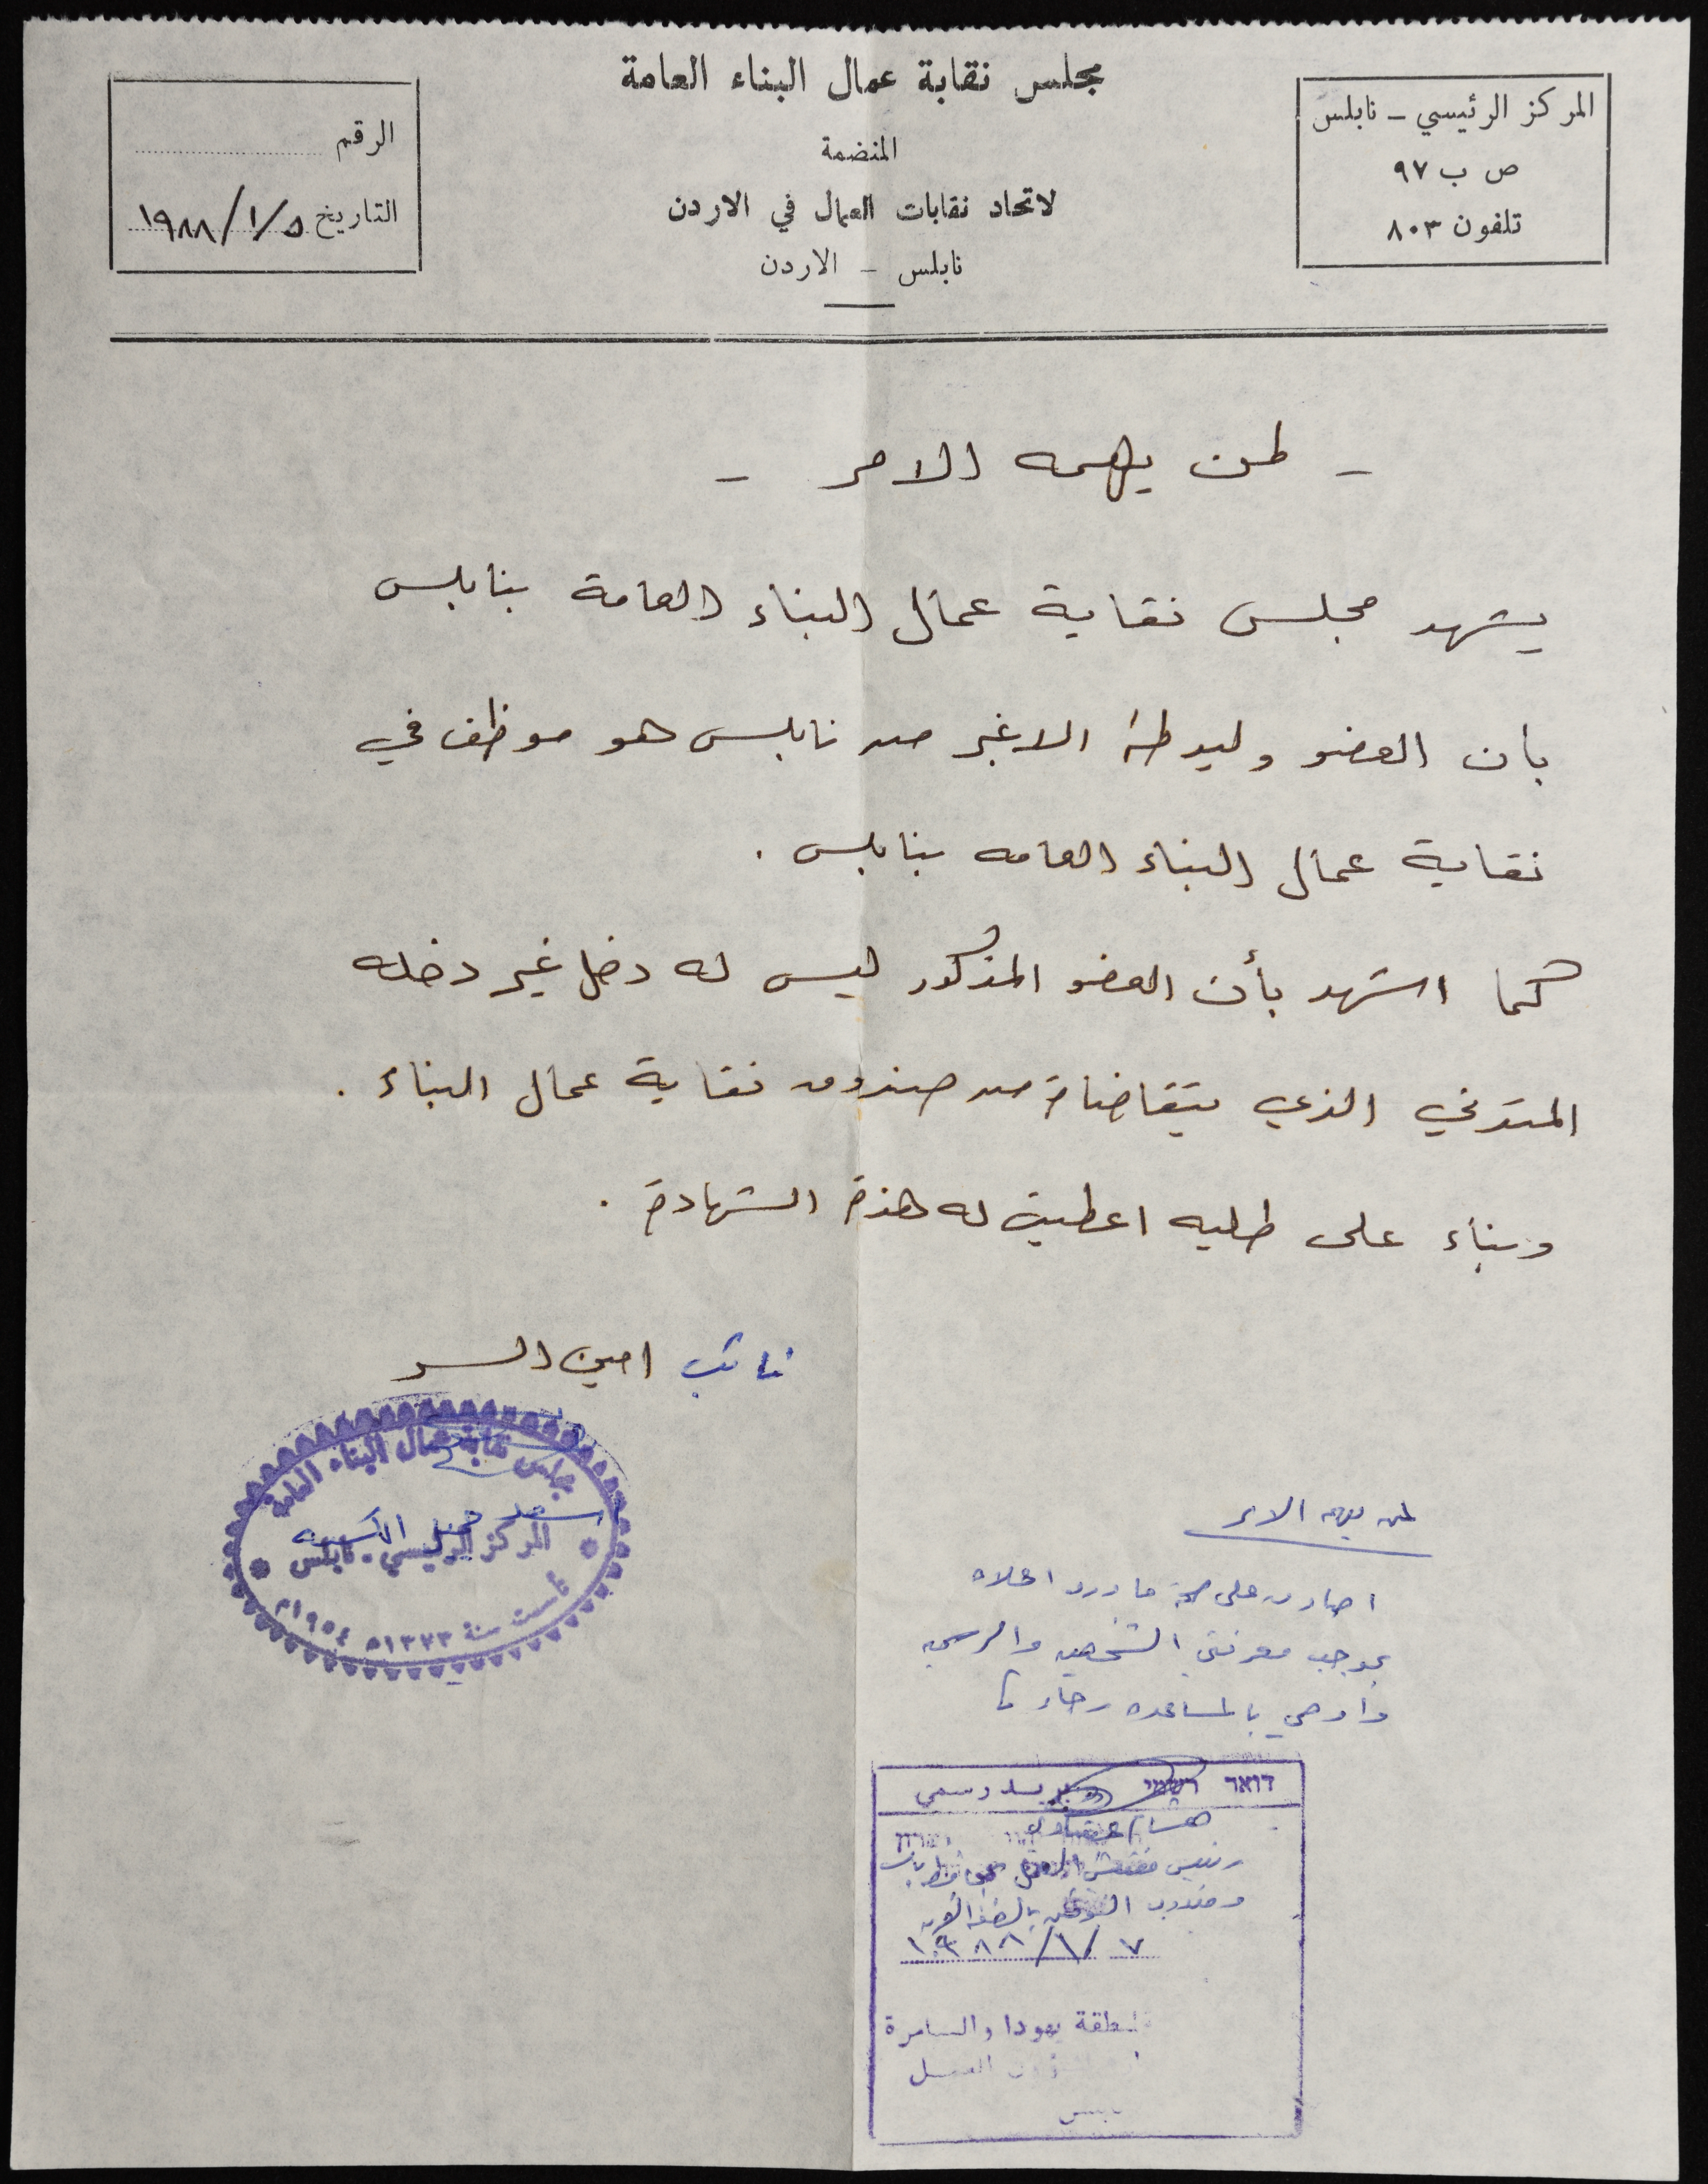 مجلس نقابة عمال البناء العامة
المنضمة
لاتحاد نقابات العمال في الاردن
نابلس - الاردن
المركز الرئيسي - نابلس
ص ب ٩٧
تلفون ٨٠٣
الرقم
التاريخ ٥/١/١٩٨٨
- لمن يهمه الامر -
يشهد مجلس نقابة عمال البناء العامة بنابلس
بان العضو وليد طه الاغبر من نابلس هو موظف في
نقابة عمال البناء العامه بنابلس .
كما اشهد بأن العضو المذكور ليس له دخل غير دخله
المتدني الذي يتقاضاه من صندوق نقابة عمال البناء .
وبناء على طلبه اعطيت له هذه الشهادة .
نائب امين السر
مجلس نقابة عمال البناء العامة
المركز الرئيسي - نابلس
تأسست سنة ١٣٧٣ه ١٩٥٤م
لمن يهمه الامر
اصادق على صحة ما ورد اعلاه
بموجب معرفتي الشخصيه والرسميه
وأوصي بالمساعده رجاء
דואר רשמי بريد رسمي
رئيس مفتشي العمل
ومندوب بالضفه الغربيه
٧/١/١٩٨٨
لمنطقة يهودا والسامرة
العمل
نابلس